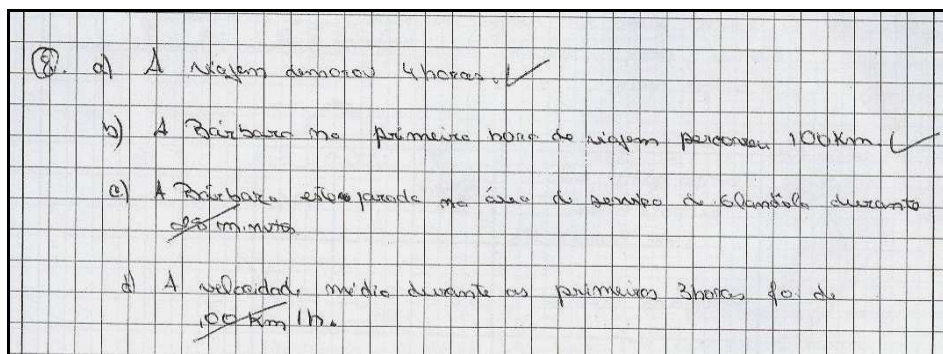 8. a) A viajem demorou 4 horas.
b) A Bárbara na primeira hora de viajem percorreu 100Km
c) A Bárbara esteve parada na área de serviço de Glândola durante
25 minutos
d) A velocidade média durante as primeiras 3horas foi de
100 Km/h.